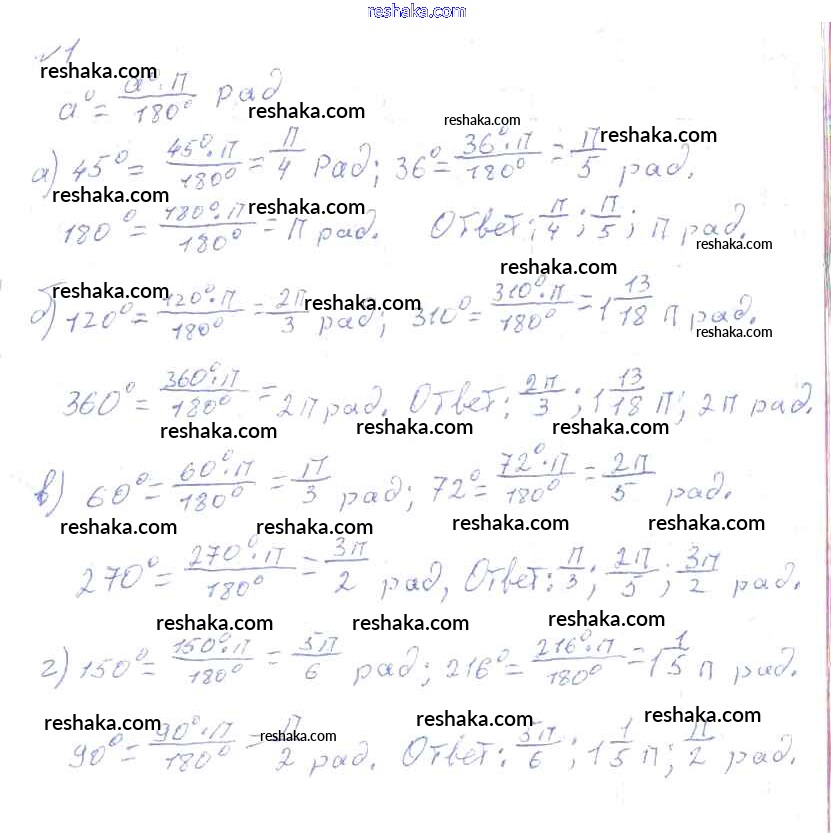 reshaka.com
№1
reshaka.com
a° = a°·π/180° рад
reshaka.com reshaka.com reshaka.com
а) 45° = 45°·π/180° = π/4 рад; 36° = 36°·π/180° = π/5 рад.
reshaka.com reshaka.com
180° = 180°·π/180° = π рад. Ответ: π/4; π/5; π рад.
reshaka.com
reshaka.com
reshaka.com reshaka.com
б) 120° = 120°·π/180° = 2π/3 рад; 310° = 310°·π/180° = 1 13/18 π рад.
reshaka.com
360° = 360°·π/180° = 2π рад. Ответ: 2π/3; 1 13/18 π; 2π рад.
reshaka.com reshaka.com reshaka.com
в) 60° = 60°·π/180° = π/3 рад; 72° = 72°·π/180° = 2π/5 рад.
reshaka.com reshaka.com reshaka.com reshaka.com
270° = 270°·π/180° = 3π/2 рад, Ответ: π/3; 2π/5; 3π/2 рад.
reshaka.com reshaka.com reshaka.com
г) 150° = 150°·π/180° = 5π/6 рад; 216° = 216°·π/180° = 1 1/5 π рад.
reshaka.com reshaka.com reshaka.com reshaka.com
90° = 90°·π/180° = π/2 рад. Ответ: 5π/6; 1 1/5 π; π/2 рад.